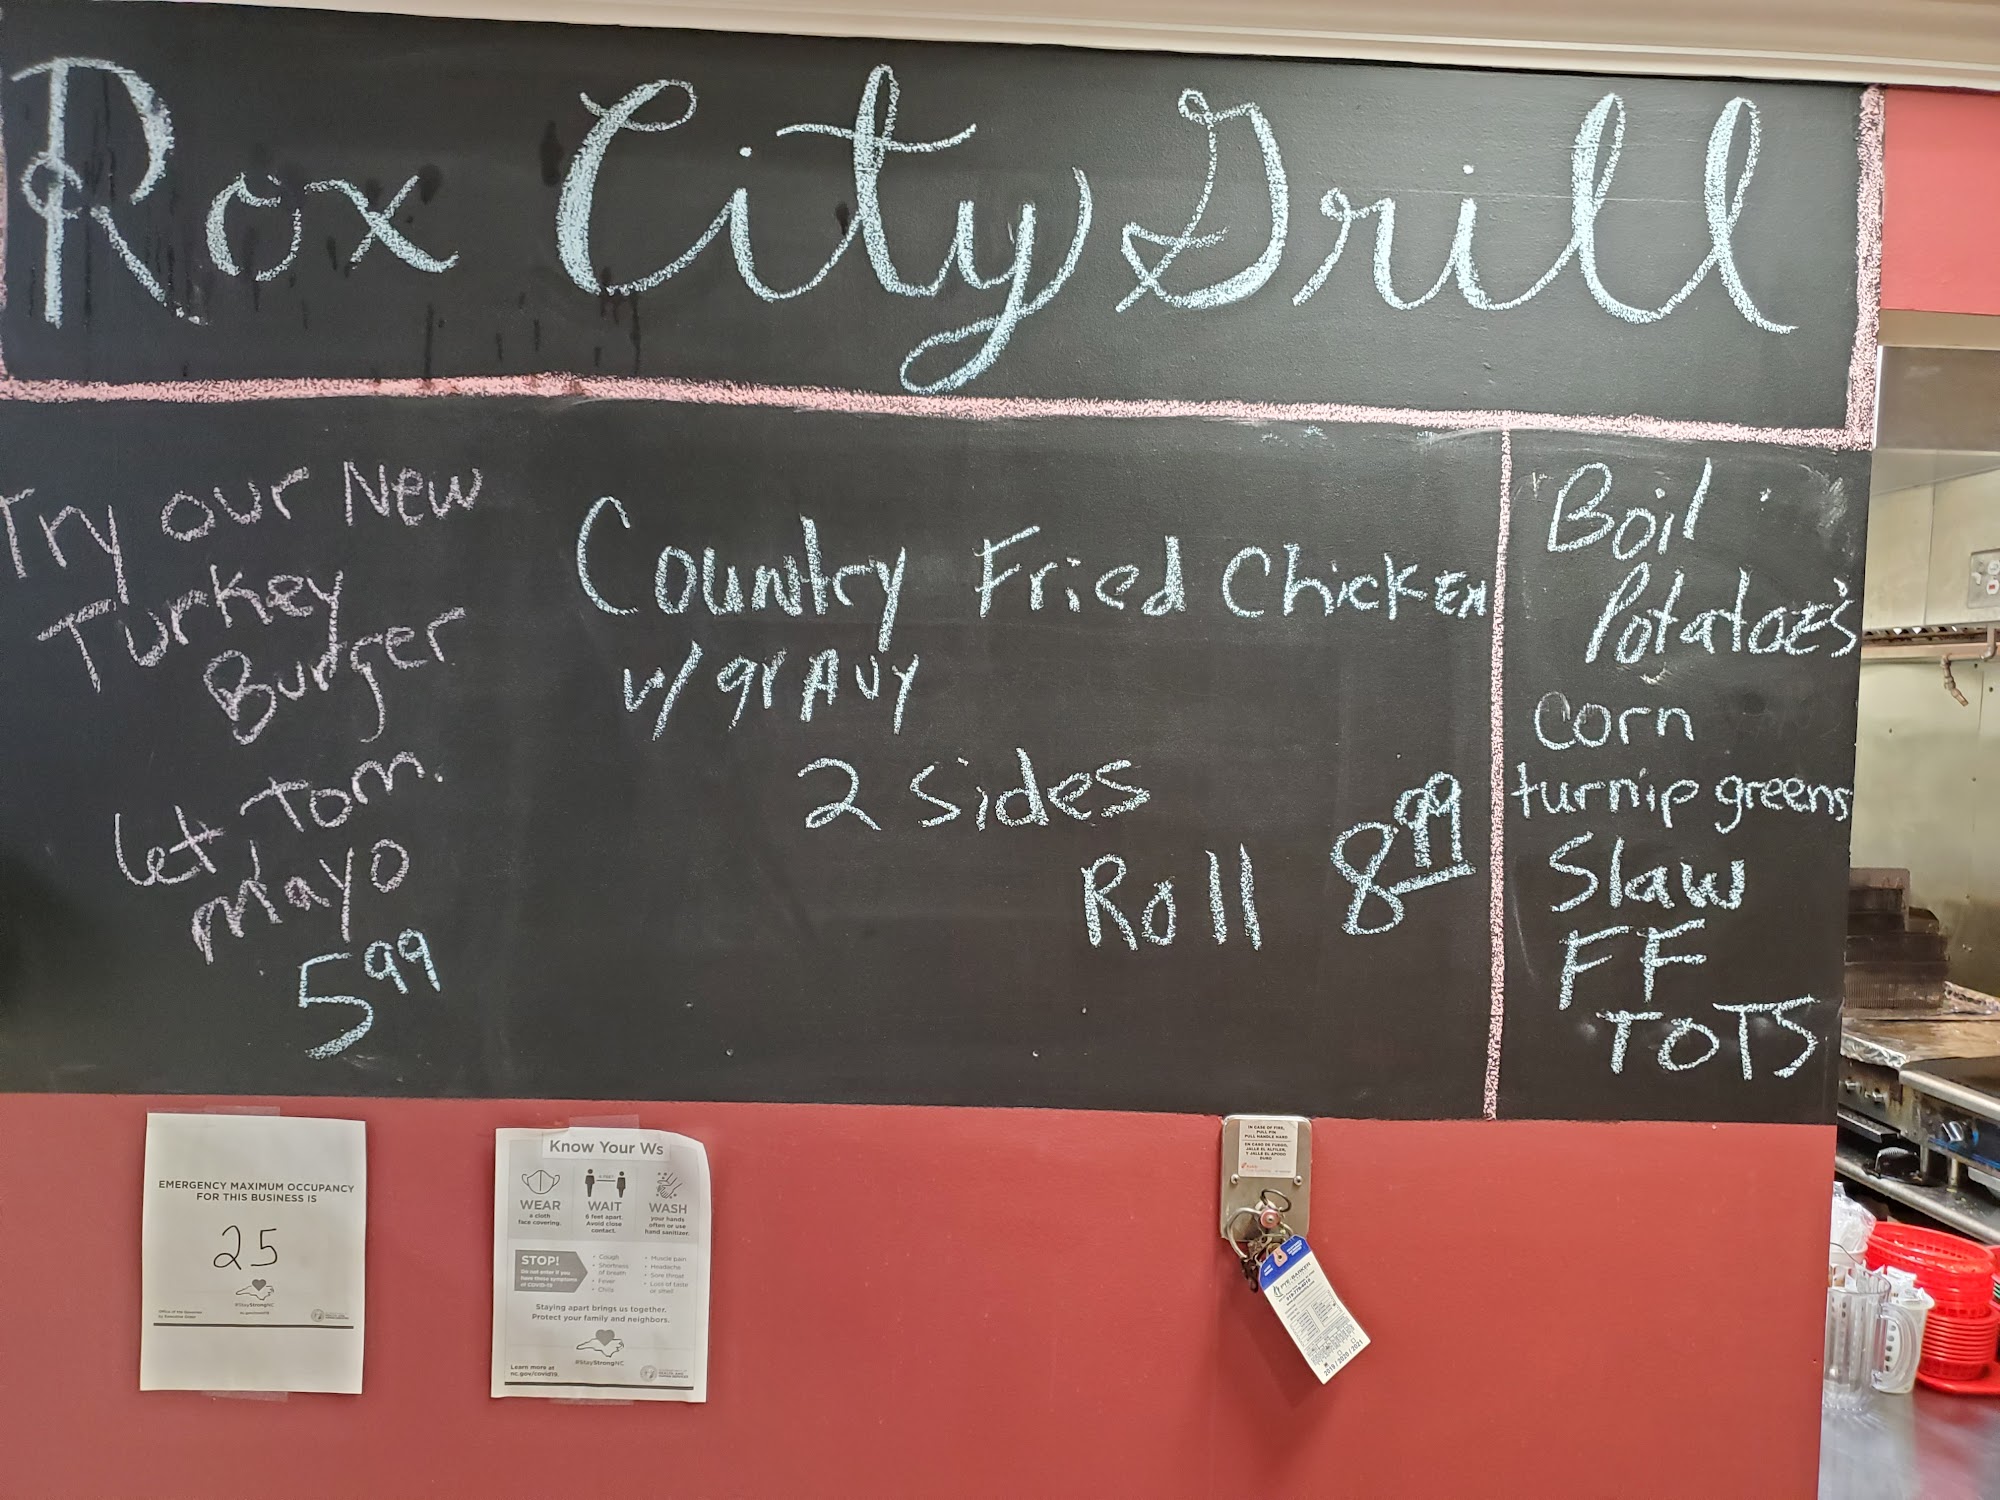 Rox City Grill
Try our New
Turkey
Burger
Let Tom.
mayo
5.99
Country Fried Chicken
w/ gravy
2 Sides
Roll 8.99
Boil
Potatoe's
Corn
turnip greens
Slaw
FF
TOTS
EMERGENCY MAXIMUM OCCUPANCY
FOR THIS BUSINESS IS
25
#StayStrongNC
nc.gov/covid19
Office of the Governor
by Executive Order
Know Your Ws
6 FEET
WEAR
a cloth
face covering.
WAIT
6 feet apart.
Avoid close
contact.
WASH
your hands
often or use
hand sanitizer.
STOP!
Do not enter if you
have these symptoms
of COVID-19
• Cough
• Shortness
of breath
• Fever
• Chills
• Muscle pain
• Headache
• Sore throat
• Loss of taste
or smell
Staying apart brings us together.
Protect your family and neighbors.
#StayStrongNC
Learn more at
nc.gov/covid19.
IN CASE OF FIRE,
PULL PIN,
PULL HANDLE HARD
EN CASO DE FUEGO,
JALLE EL ALFILER,
Y JALLE EL APODO
DURO
PYE-BARKER
2019 / 2020 / 2021